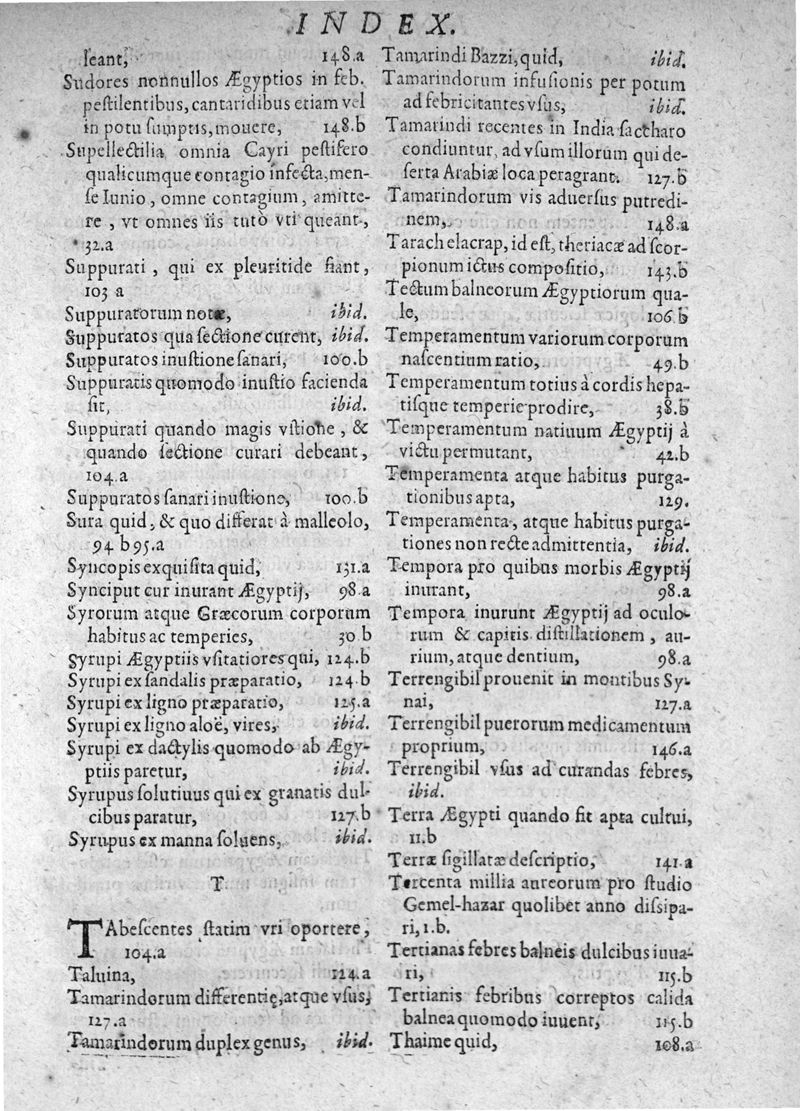 INDEX.
ſeant, 148.a
Sudores nonnullos Ægyptios in feb.
peſtilentibus, cantaridibus etiam vel
in potu ſumptis, mouere, 148.b
Supellectilia omnia Cayri peſtifero
qualicumque contagio infecta, men-
ſe Iunio, omne contagium, amitte-
re, vt omnes iis tutò vti queant,
32.a
Suppurati, qui ex pleuritide fiant,
103 a
Suppuratorum notæ, ibid.
Suppuratos qua ſectione curent, ibid.
Suppuratos inuſtione ſanari, 100.b
Suppuratis quomodo inuſtio facienda
ſit, ibid.
Suppurati quando magis vſtione, &
quando ſectione curari debeant,
104.a
Suppuratos ſanari inuſtione, 100.b
Sura quid, & quo differat à malleolo,
94 b 95.a
Syncopis exquiſita quid, 131.a
Synciput cur inurant Ægyptij, 98.a
Syrorum atque Græcorum corporum
habitus ac temperies, 30 b
Syrupi Ægyptiis vſitatiores qui, 124.b
Syrupi ex ſandalis præparatio, 124.b
Syrupi ex ligno præparatio, 125.a
Syrupi ex ligno aloë, vires, ibid.
Syrupi ex dactylis quomodo ab Ægy-
ptiis paretur, ibid.
Syrupus ſolutiuus qui ex granatis dul-
cibus paratur, 127.b
Syrupus ex manna ſoluens, ibid.
T
TAbeſcentes ſtatim vri oportere,
104.a
Taluina, 124.a
Tamarindorum differentię, atque vſus,
127.a
Tamarindorum duplex genus, ibid.
Tamarindi Bazzi, quid, ibid.
Tamarindorum infuſionis per potum
ad febricitantes vſus, ibid.
Tamarindi recentes in India ſaccharo
condiuntur, ad vſum illorum qui de-
ſerta Arabiæ loca peragrant. 127.b
Tamarindorum vis aduerſus putredi-
nem, 148.a
Tarach elacrap, id eſt, theriacæ ad ſcor-
pionum ictus compoſitio, 143.b
Tectum balneorum Ægyptiorum qua-
le, 106.b
Temperamentum variorum corporum
naſcentium ratio, 49.b
Temperamentum totius à cordis hepa-
tiſque temperie prodire, 38.b
Temperamentum natiuum Ægyptij à
victu permutant, 42.b
Temperamenta atque habitus purga-
tionibus apta, 129.
Temperamenta, atque habitus purga-
tiones non recte admittentia, ibid.
Tempora pro quibus morbis Ægyptij
inurant, 98.a
Tempora inurunt Ægyptij ad oculo-
rum & capitis diſtillationem, au-
rium, atque dentium, 98.a
Terrengibil prouenit in montibus Sy-
nai, 127.a
Terrengibil puerorum medicamentum
proprium, 146.a
Terrengibil vſus ad curandas febres,
ibid.
Terra Ægypti quando ſit apta cultui,
11.b
Terræ ſigillatæ deſcriptio, 141.a
Tercenta millia aureorum pro ſtudio
Gemel-hazar quolibet anno diſsipa-
ri, 1.b.
Tertianas febres balneis dulcibus iuua-
ri, 115.b
Tertianis febribus correptos calida
balnea quomodo iuuent, 115.b
Thaime quid, 108.a